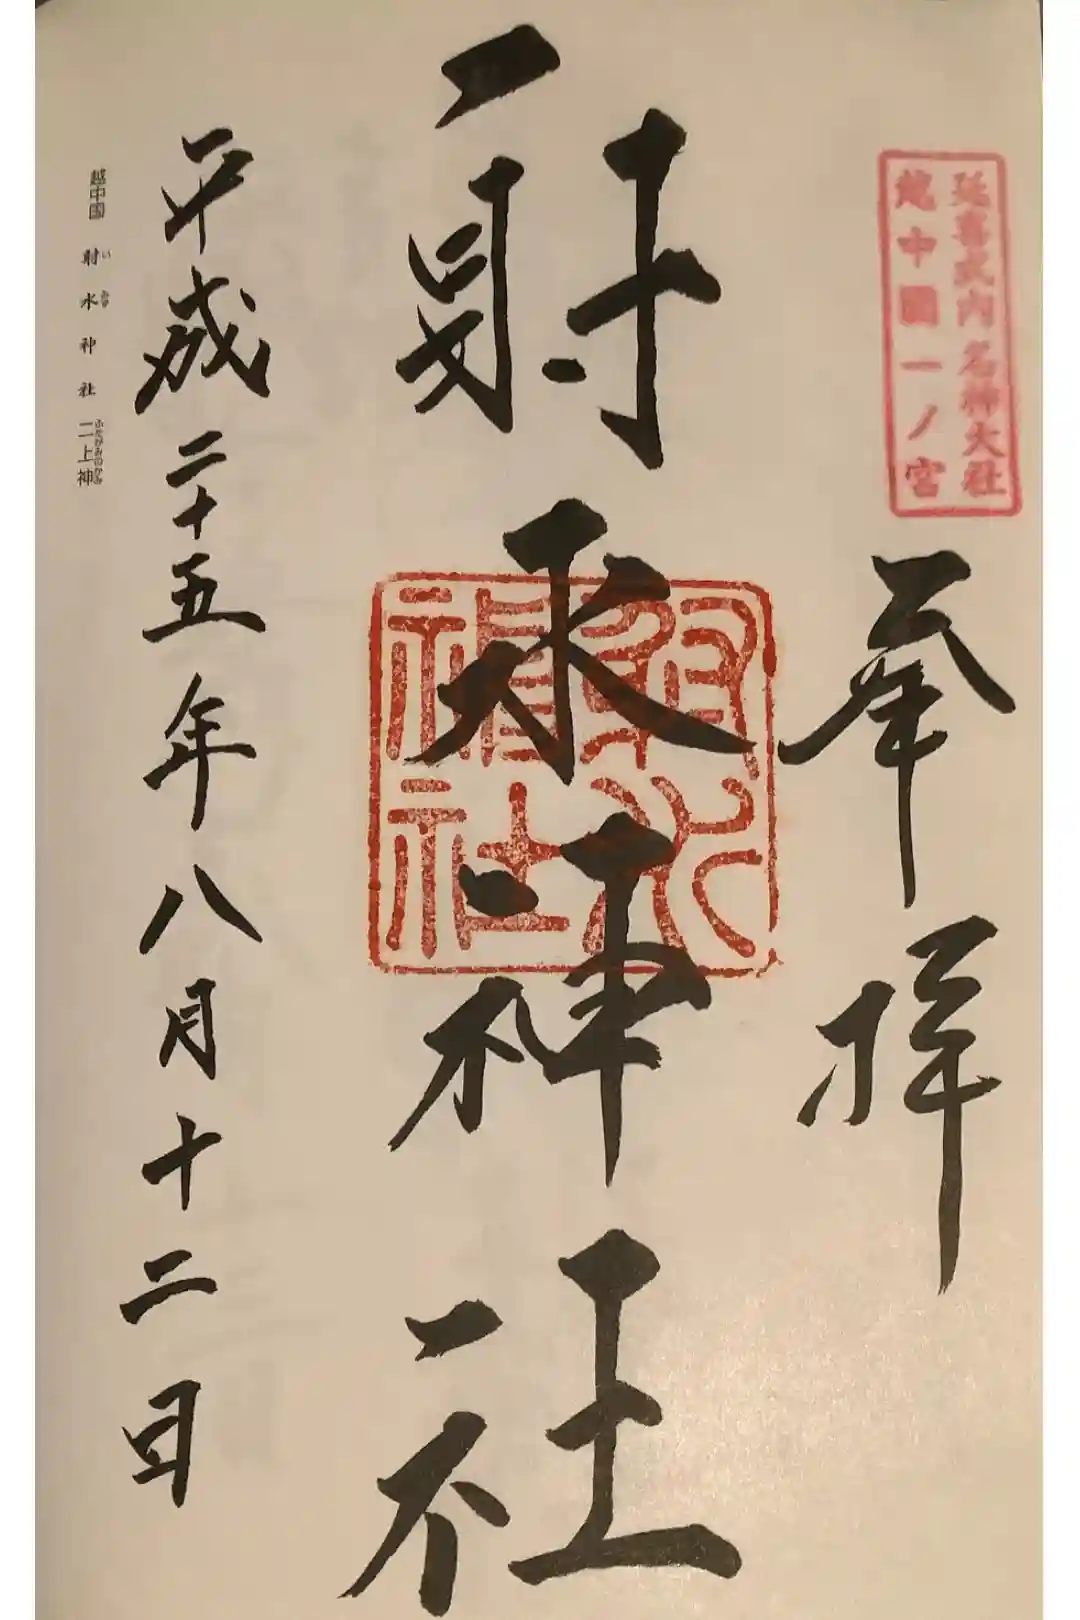 延喜式内 名神大社
越中國一ノ宮
奉拝
射水神社
射水
神社
平成二十五年八月十二日
越中国 射水神社 二上神
いみず
ふたがみのかみ